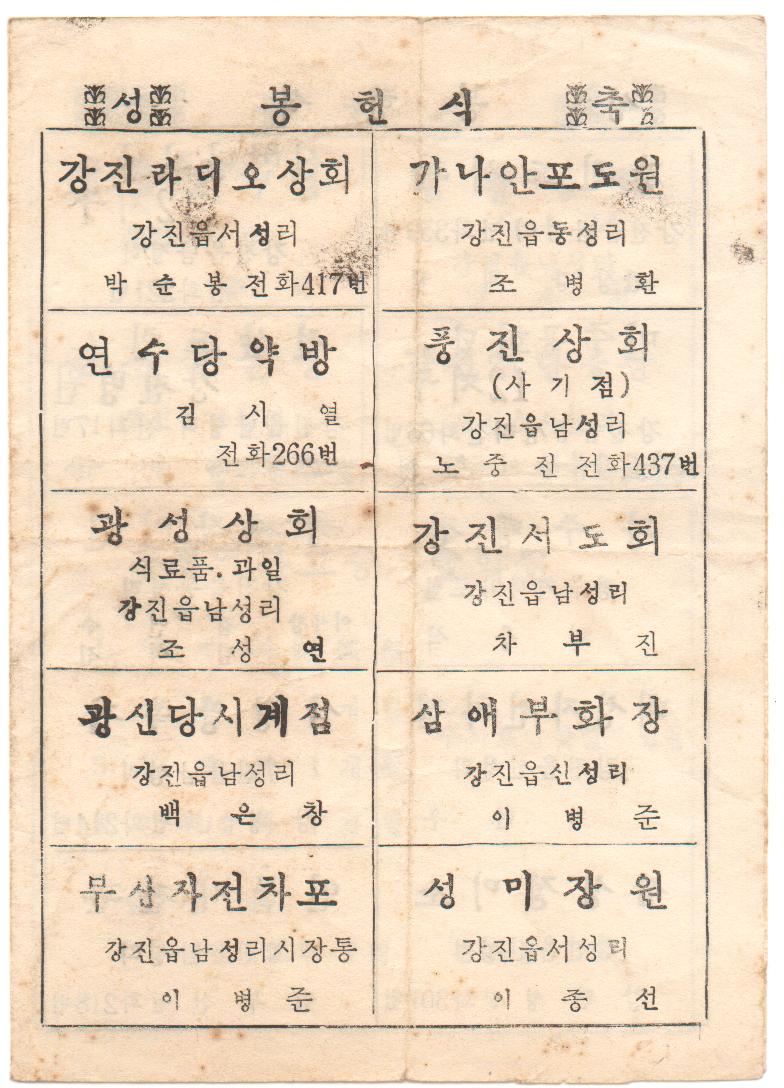 성 봉 헌 식 축
강진라디오상회
강진읍서성리
박 순 봉 전화417번
가나안포도원
강진읍동성리
조 병 환
연 수 당 약 방
김 시 열
전화266번
풍 진 상 회
(사 기 점)
강진읍남성리
노 중 진 전화437번
광 성 상 회
식료품.과일
강진읍남성리
조 성 연
강 진 서 도 회
강진읍남성리
차 부 진
광신당시계점
강진읍남성리
백 은 창
삼 애 부 화 장
강진읍신성리
이 병 준
무산자전차포
강진읍남성리시장통
이 병 준
성 미 장 원
강진읍서성리
이 종 선